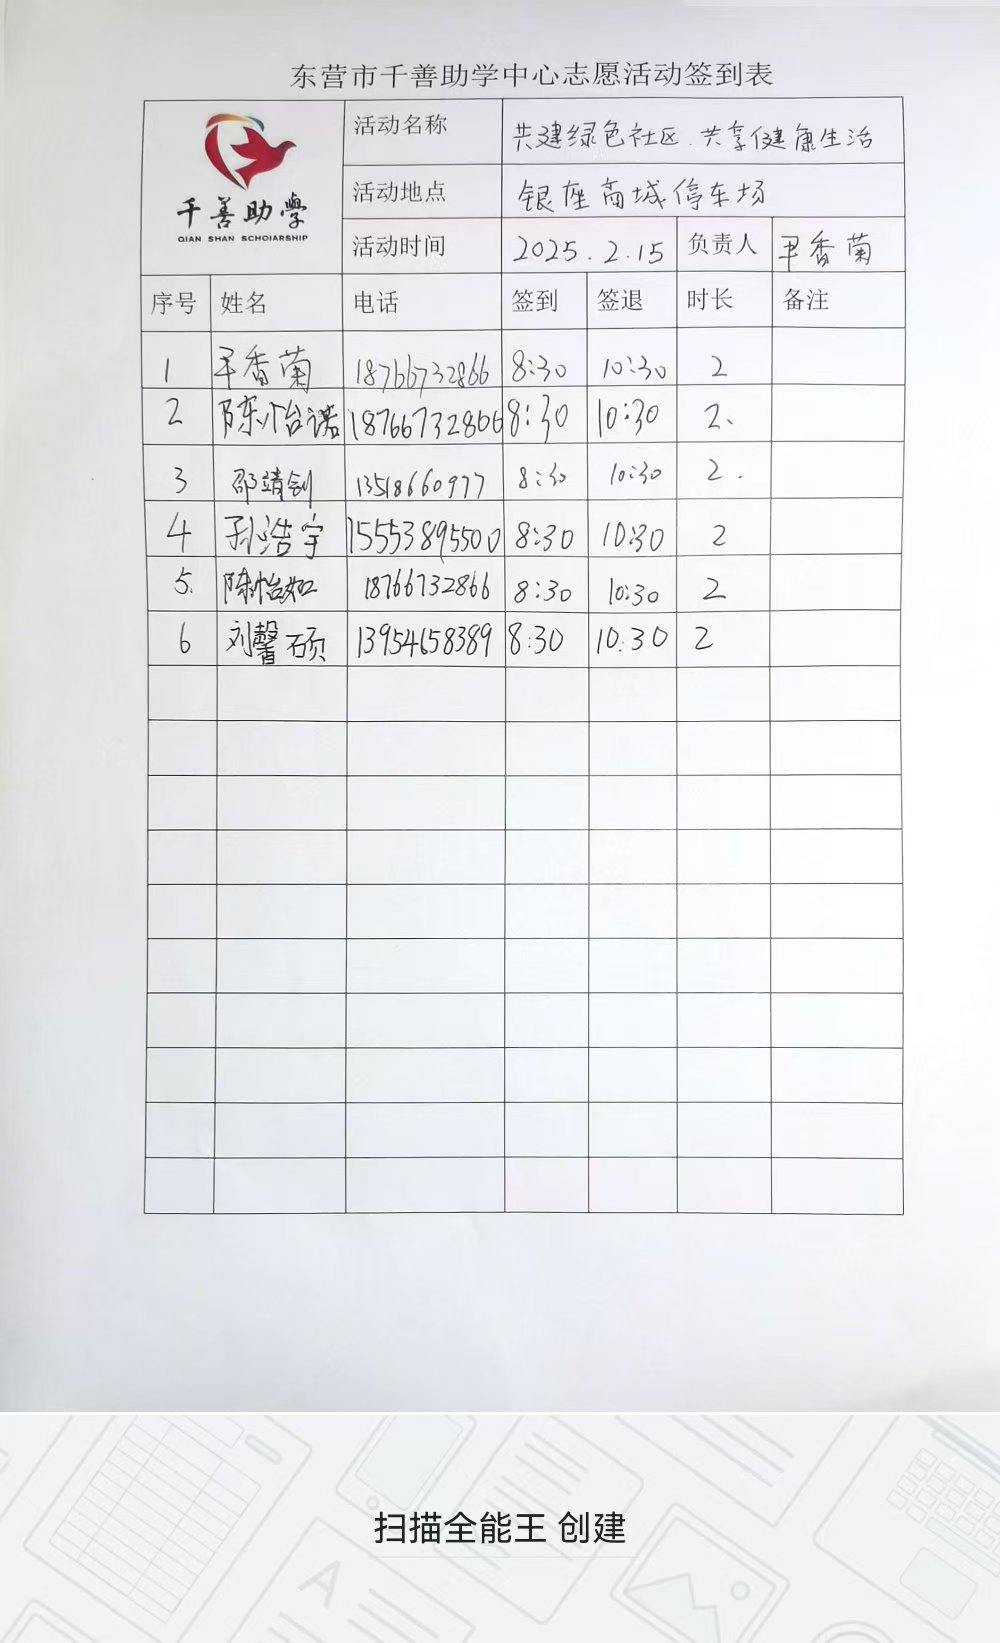 东营市千善助学中心志愿活动签到表
千善助學
QIAN SHAN SCHOlARSHIP
活动名称 共建绿色社区.共享健康生活
活动地点 银座商城停车场
活动时间 2025.2.15 负责人 尹香菊
序号 姓名 电话 签到 签退 时长 备注
1 尹香菊 18766732866 8:30 10:30 2
2 陈怡诺 18766732866 8:30 10:30 2、
3 邵靖剑 13518660977 8:30 10:30 2.
4 孙浩宇 15553895500 8:30 10:30 2
5. 陈怡如 18766732866 8:30 10:30 2
6 刘馨硕 13954658389 8:30 10:30 2
扫描全能王 创建